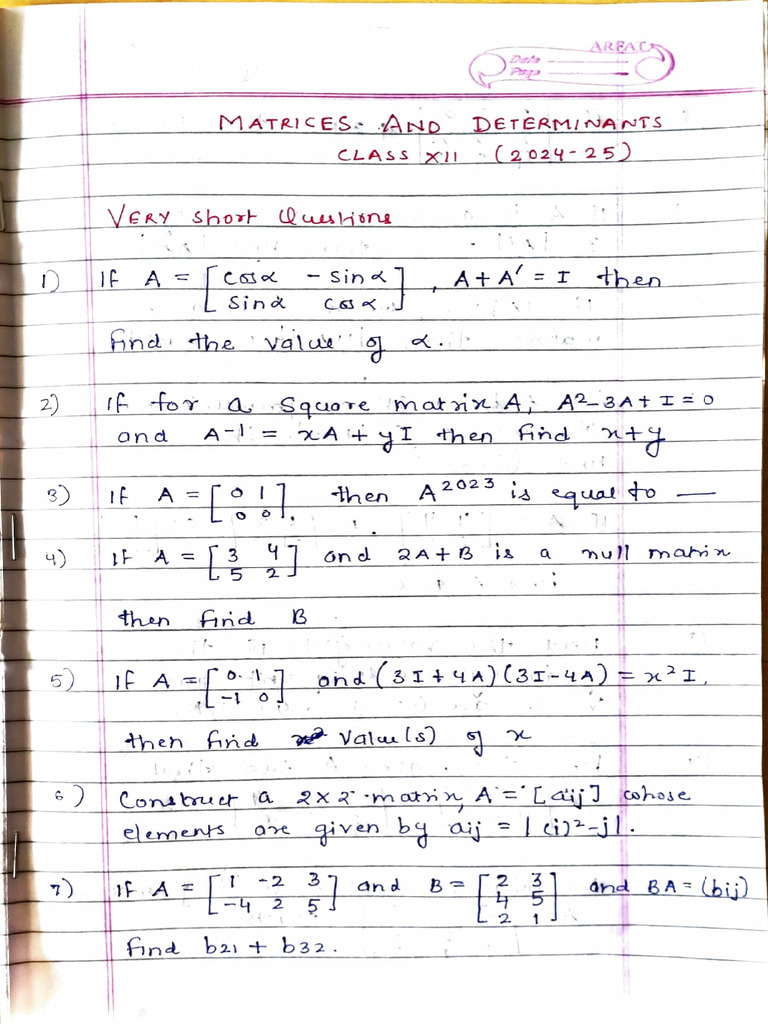 AREAL
Date
Page
MATRICES AND DETERMINANTS
CLASS XII (2024-25)
VERY short Questions
1) If A = [cosα -sinα], A+A' = I then
[sinα cosα]
find the value of α.
2) If for a square matrix A, A²-3A+I=0
and A-1 = xA+yI then find x+y
3) If A = [0 1] then A²⁰²³ is equal to —
[0 0].
4) If A = [3 4] and 2A+B is a null matrix
[5 2]
then find B
5) If A = [0 1] and (3I+4A)(3I-4A) = x²I,
[-1 0]
then find value(s) of x
6) Construct a 2x2 matrix, A = [aij] whose
elements are given by aij = |(i)²-j|.
7) If A = [1 -2 3] and B = [2 3] and BA = (bij)
[-4 2 5] [4 5]
[2 1]
find b21 + b32.